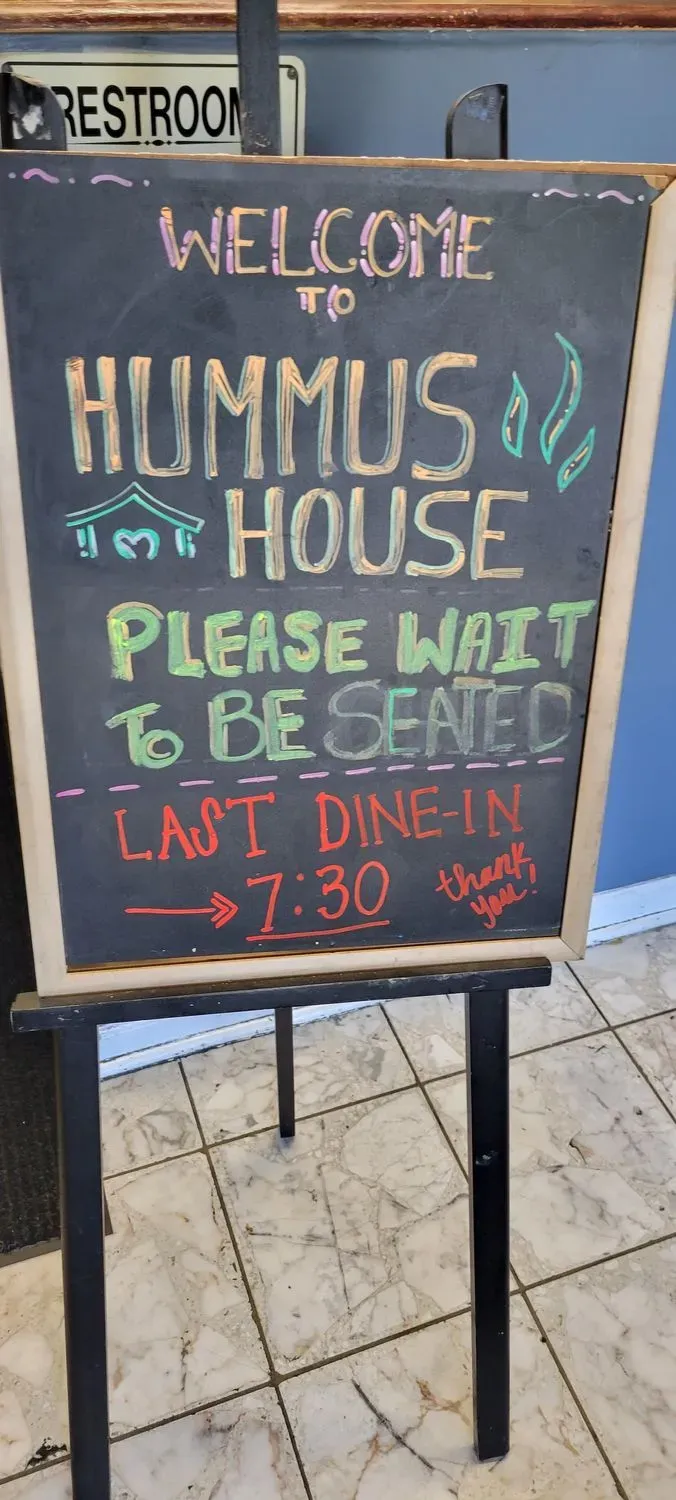 RESTROOM
WELCOME
TO
HUMMUS
HOUSE
PLEASE WAIT
TO BE SEATED
LAST DINE-IN
7:30
thank
you!